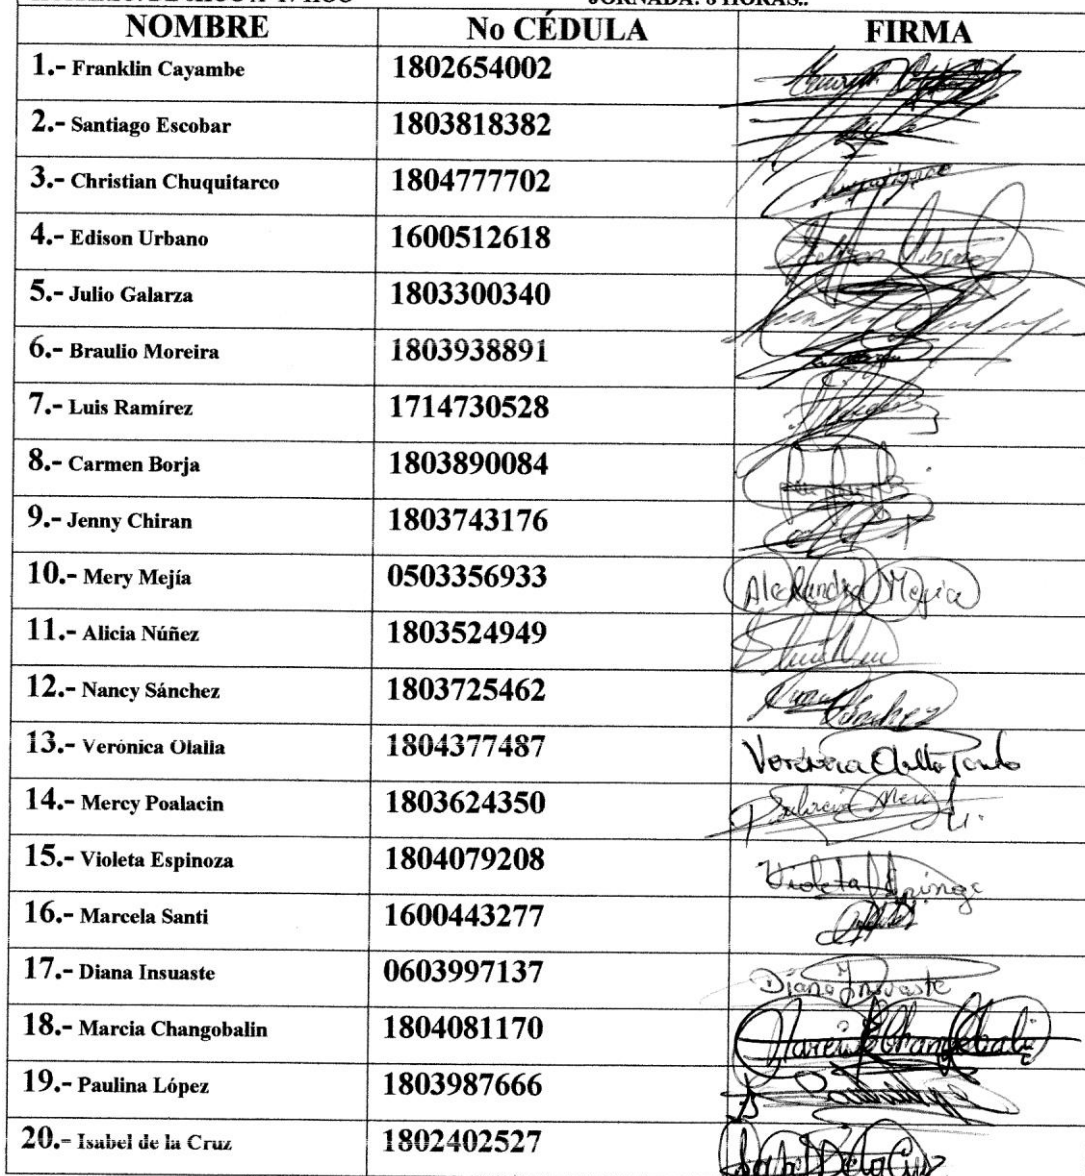 JORNADA: 8 HORAS..
NOMBRE No CÉDULA FIRMA
1.- Franklin Cayambe 1802654002
2.- Santiago Escobar 1803818382
3.- Christian Chuquitarco 1804777702
4.- Edison Urbano 1600512618
5.- Julio Galarza 1803300340
6.- Braulio Moreira 1803938891
7.- Luis Ramírez 1714730528
8.- Carmen Borja 1803890084
9.- Jenny Chiran 1803743176
10.- Mery Mejía 0503356933 Alexandra Mejia
11.- Alicia Núñez 1803524949
12.- Nancy Sánchez 1803725462 Sánchez
13.- Verónica Olalla 1804377487 Verónica
14.- Mercy Poalacin 1803624350
15.- Violeta Espinoza 1804079208 Violeta
16.- Marcela Santi 1600443277
17.- Diana Insuaste 0603997137 Diana Insuaste
18.- Marcia Changobalin 1804081170
19.- Paulina López 1803987666
20.- Isabel de la Cruz 1802402527 Isabel De la Cruz